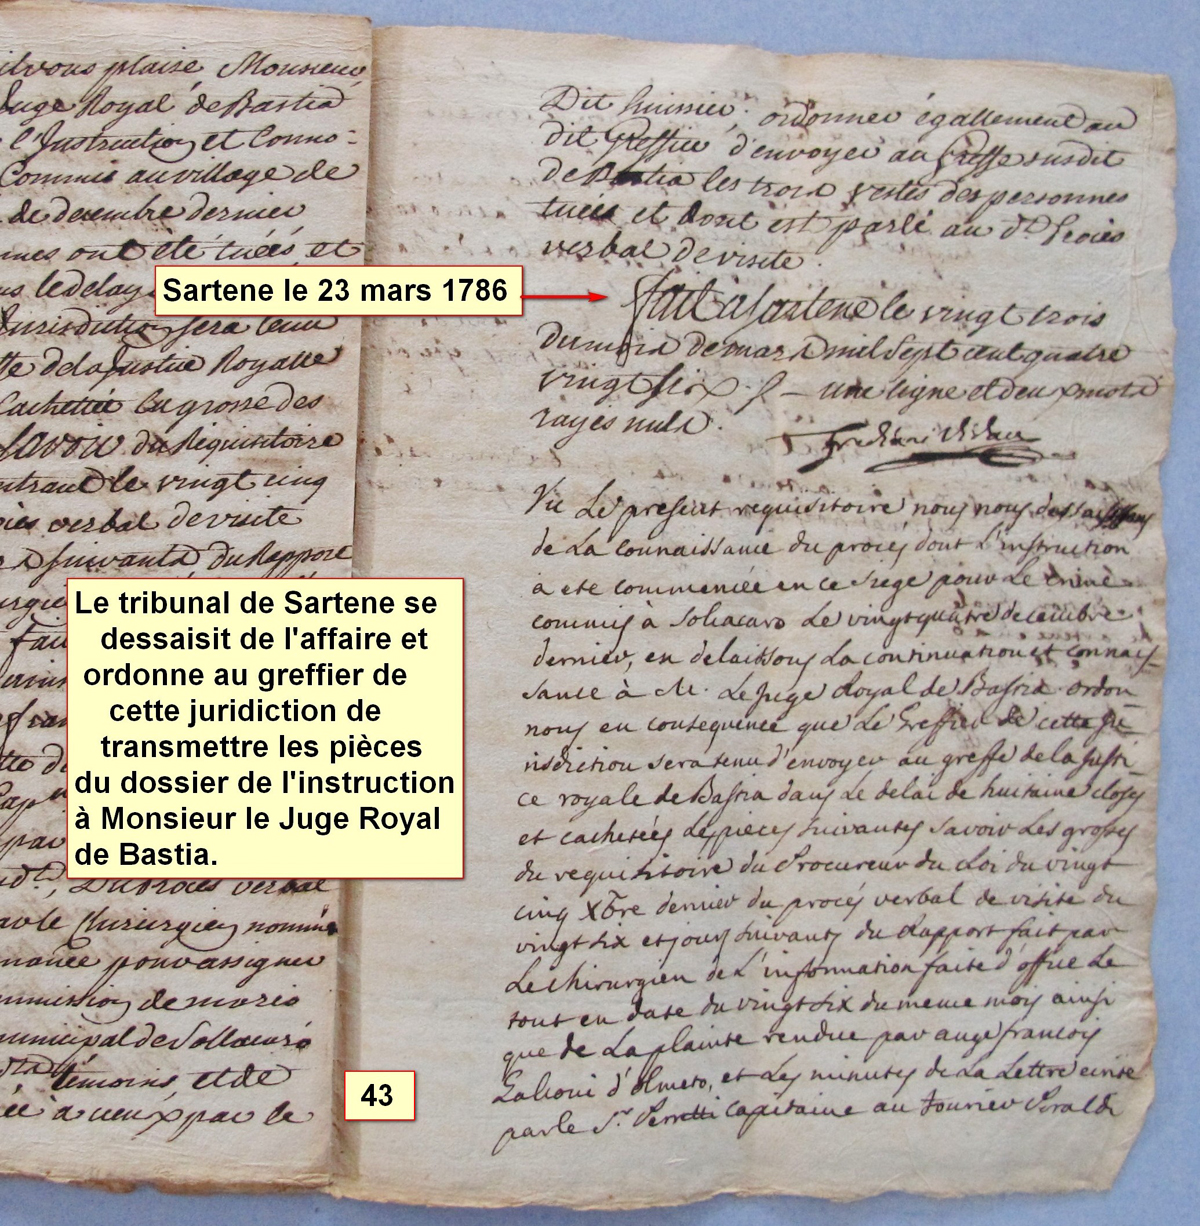 ilvous plaise Monsieur
Juge Royal de Bastia
l'Instruction et Conno-
Commis au village de
de decembre dernier
nnes ont été tuées et
us le delay
Jurisdiction sera tenu
ffe de la Justice Royalle
Cachettée la grosse des
Savoir du Requisitoire
ntrant le vingt cinq
verbal de visite
suivants du Rapport
Fait
par
verbal
par le Chirurgien nommé
pour assigner
mmission de mario
municipal de Sollacaró
témoins et de
à ceux par le
Dit huissier. ordonner égallement au
dit Greffier d'envoyer au Greffe susdit
de Bastia les trois vestes des personnes
tuées et dont est parlé au dt Procès
verbal de visite.
Fait a Sartene le vingt trois
du mois de mars mil Sept cent quatre
vingt six - une ligne et deux mots
rayés nuls.
Vu Le present requisitoire nous nous dessaisissons
de La connaissance du procès dont L'instruction
a ete commencée en ce siege pour Le crime
commis à Solacaro Le vingtquatre decembre
dernier, en delaissons La continuation et connais
sance à M. Le Juge Royal de Bastia. ordon
nons en consequence que Le Greffier de cette Ju
risdiction sera tenu d'envoyer au greffe de la Justi-
ce royale de Bastia dans Le delai de huitaine closes
et cachetées Les pieces suivantes savoir Les grosses
du requisitoire du Procureur du Roi du vingt
cinq Xbre dernier du procès verbal de visite du
vingt six et jours suivants du Rapport fait par
Le chirurgien de L'information faite d'office Le
tout en date du vingt six du meme mois ainsi
que de La plainte rendue par ange francois
Galloni d'olmeto, et Les minutes de La Lettre ecrite
par le Sr Perretti Capitaine au fourier Peraldi
Sartene le 23 mars 1786
Le tribunal de Sartene se
dessaisit de l'affaire et
ordonne au greffier de
cette juridiction de
transmettre les pièces
du dossier de l'instruction
à Monsieur le Juge Royal
de Bastia.
43